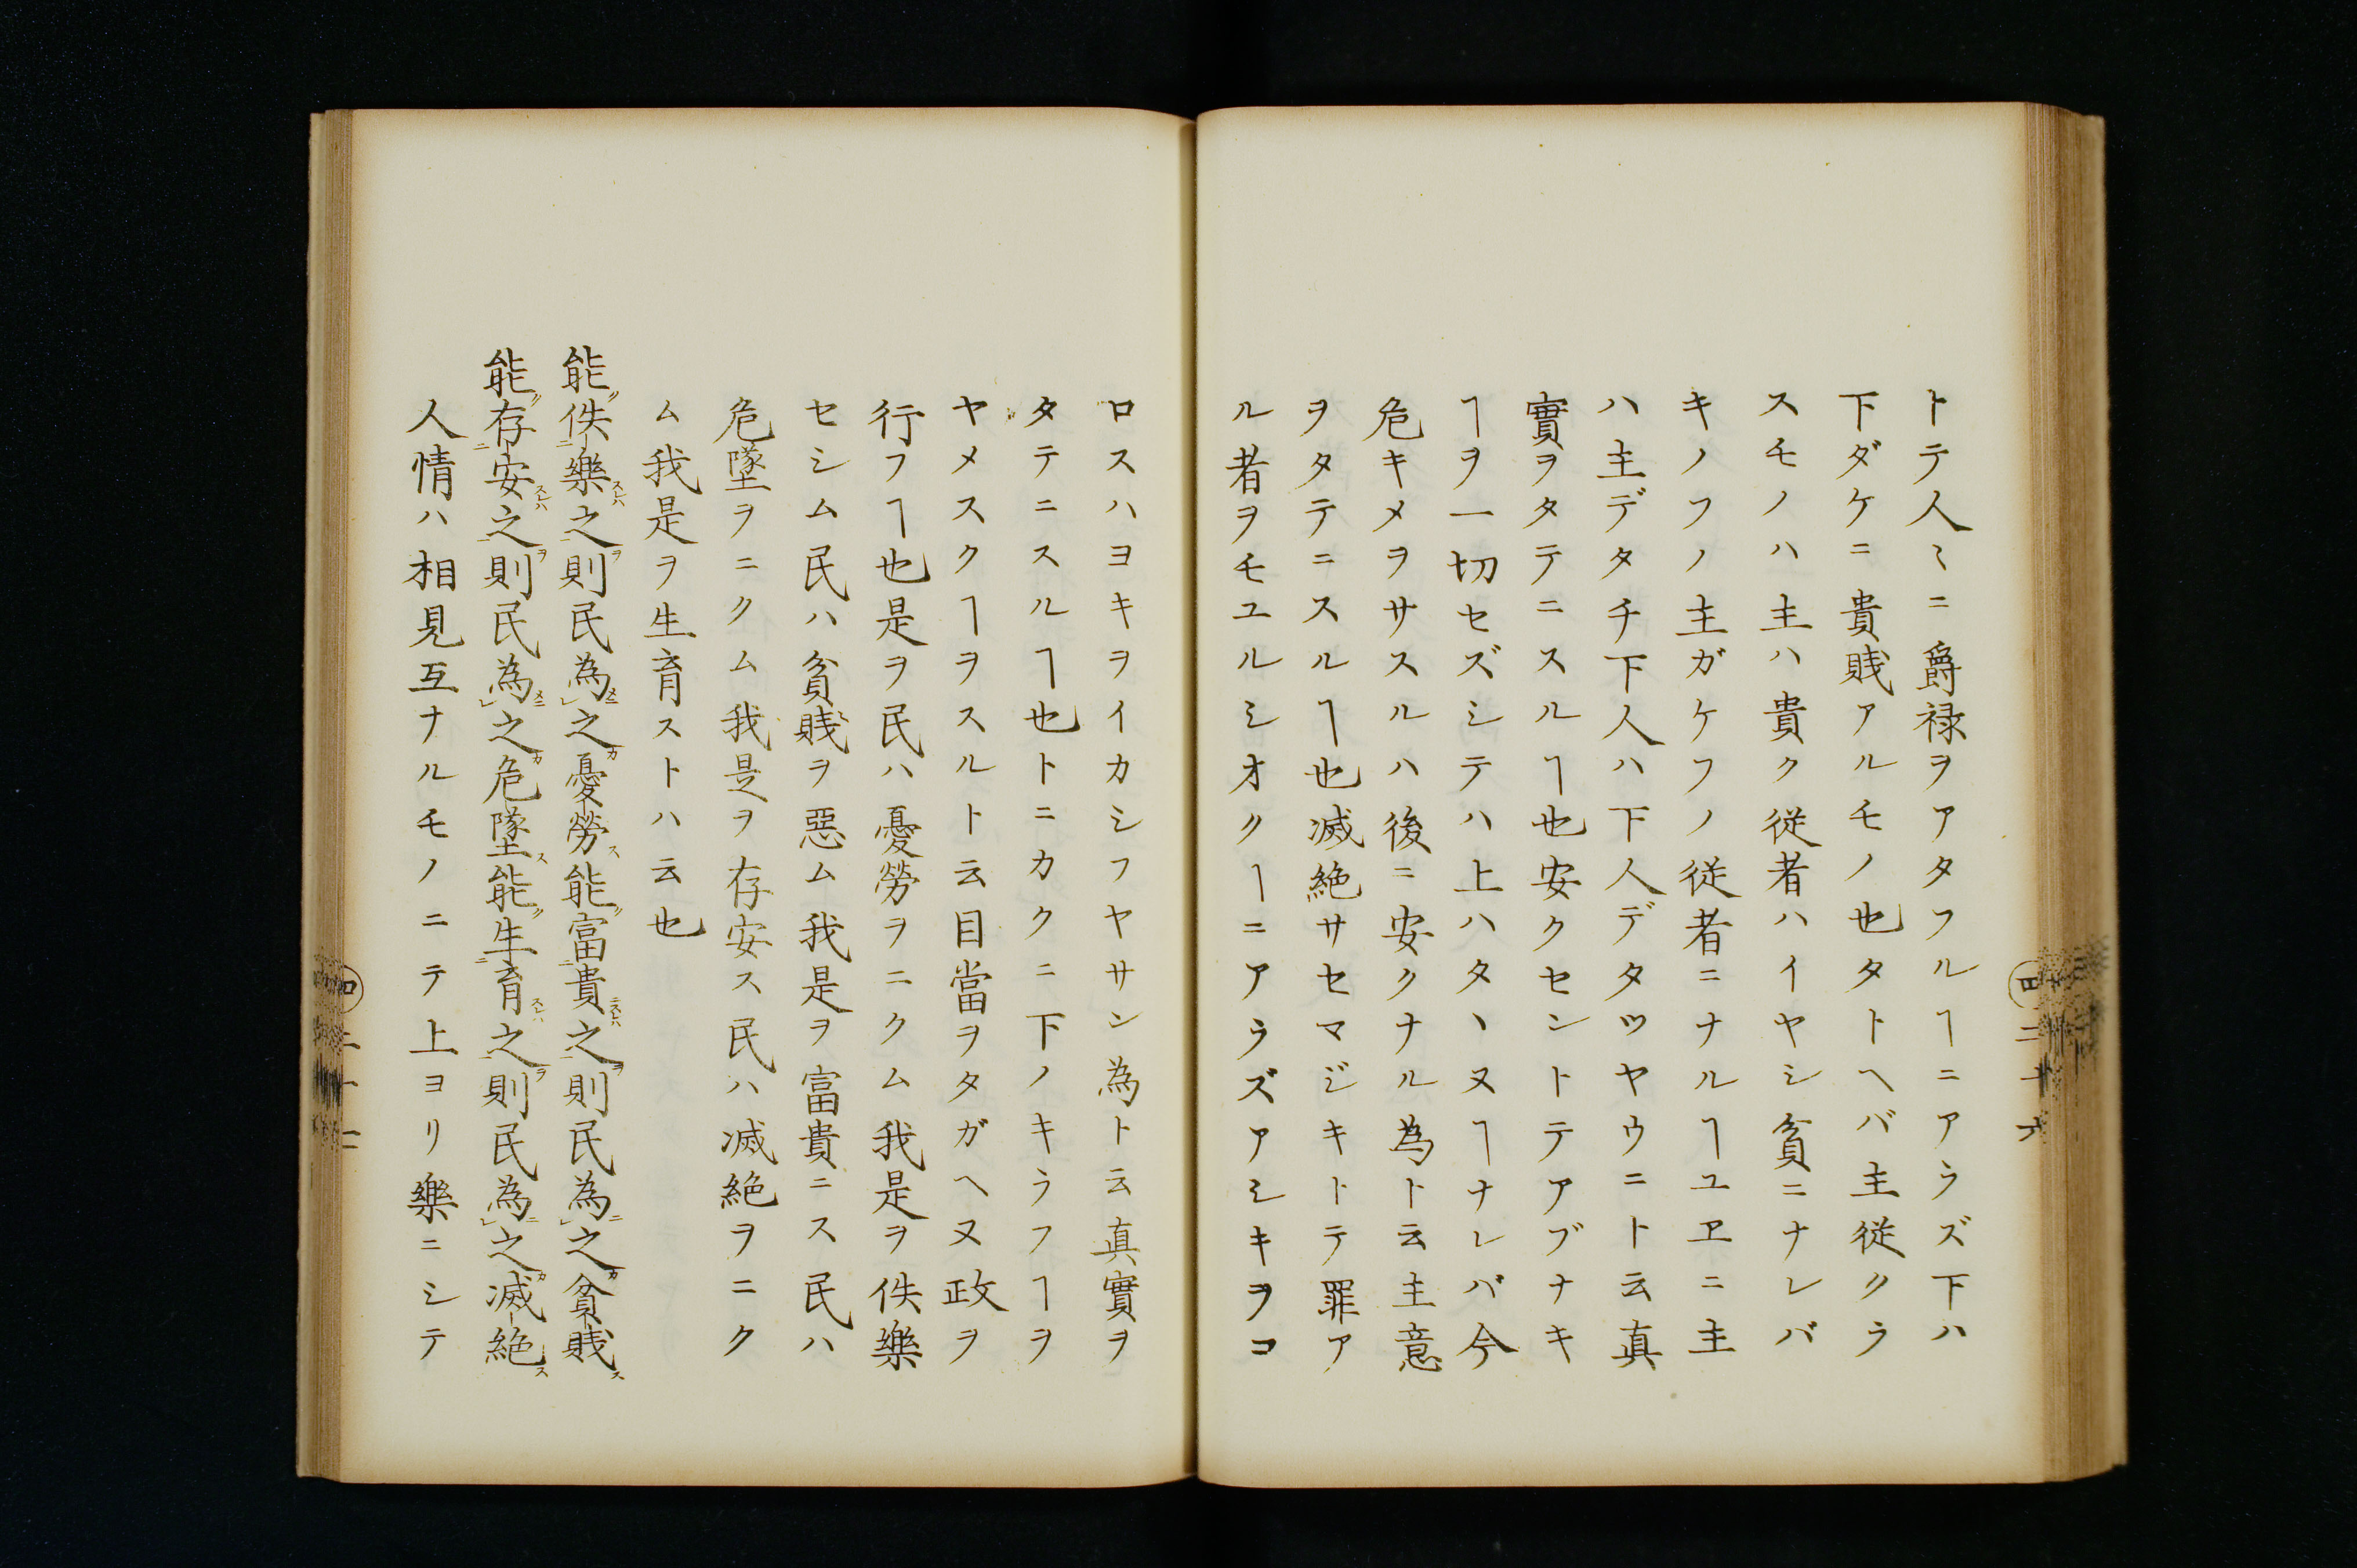 トテ人〻ニ爵禄ヲアタフルヿニアラズ下ハ
下ダケニ貴賎アルモノ也タトヘバ主従クラ
スモノハ主ハ貴ク従者ハイヤシ貧ニナレバ
キノフノ主ガケフノ従者ニナルヿユヱニ主
ハ主デタチ下人ハ下人デタツヤウニト云真
實ヲタテニスルヿ也安クセントテアブナキ
ヿヲ一切セズシテハ上ハタヽヌヿナレバ今
危キメヲサスルハ後ニ安クナル為ト云主意
ヲタテニスルヿ也滅絶サセマジキトテ罪ア
ル者ヲモユルシオクヿニアラズアシキヲコ
ロスハヨキヲイカシフヤサン為ト云真實ヲ
タテニスルヿ也トニカクニ下ノキラフヿヲ
ヤメスクヿヲスルト云目當ヲタガヘヌ政ヲ
行フヿ也是ヲ民ハ憂勞ヲニクム我是ヲ佚樂
セシム民ハ貧賎ヲ惡ム我是ヲ富貴ニス民ハ
危墜ヲニクム我是ヲ存安ス民ハ滅絶ヲニク
ム我是ヲ生育ストハ云也
能佚樂之則民為之憂勞能富貴之則民為之貧賎
能存安之則民為之危墜能生育之則民為之滅絶
人情ハ相見互ナルモノニテ上ヨリ樂ニシテ